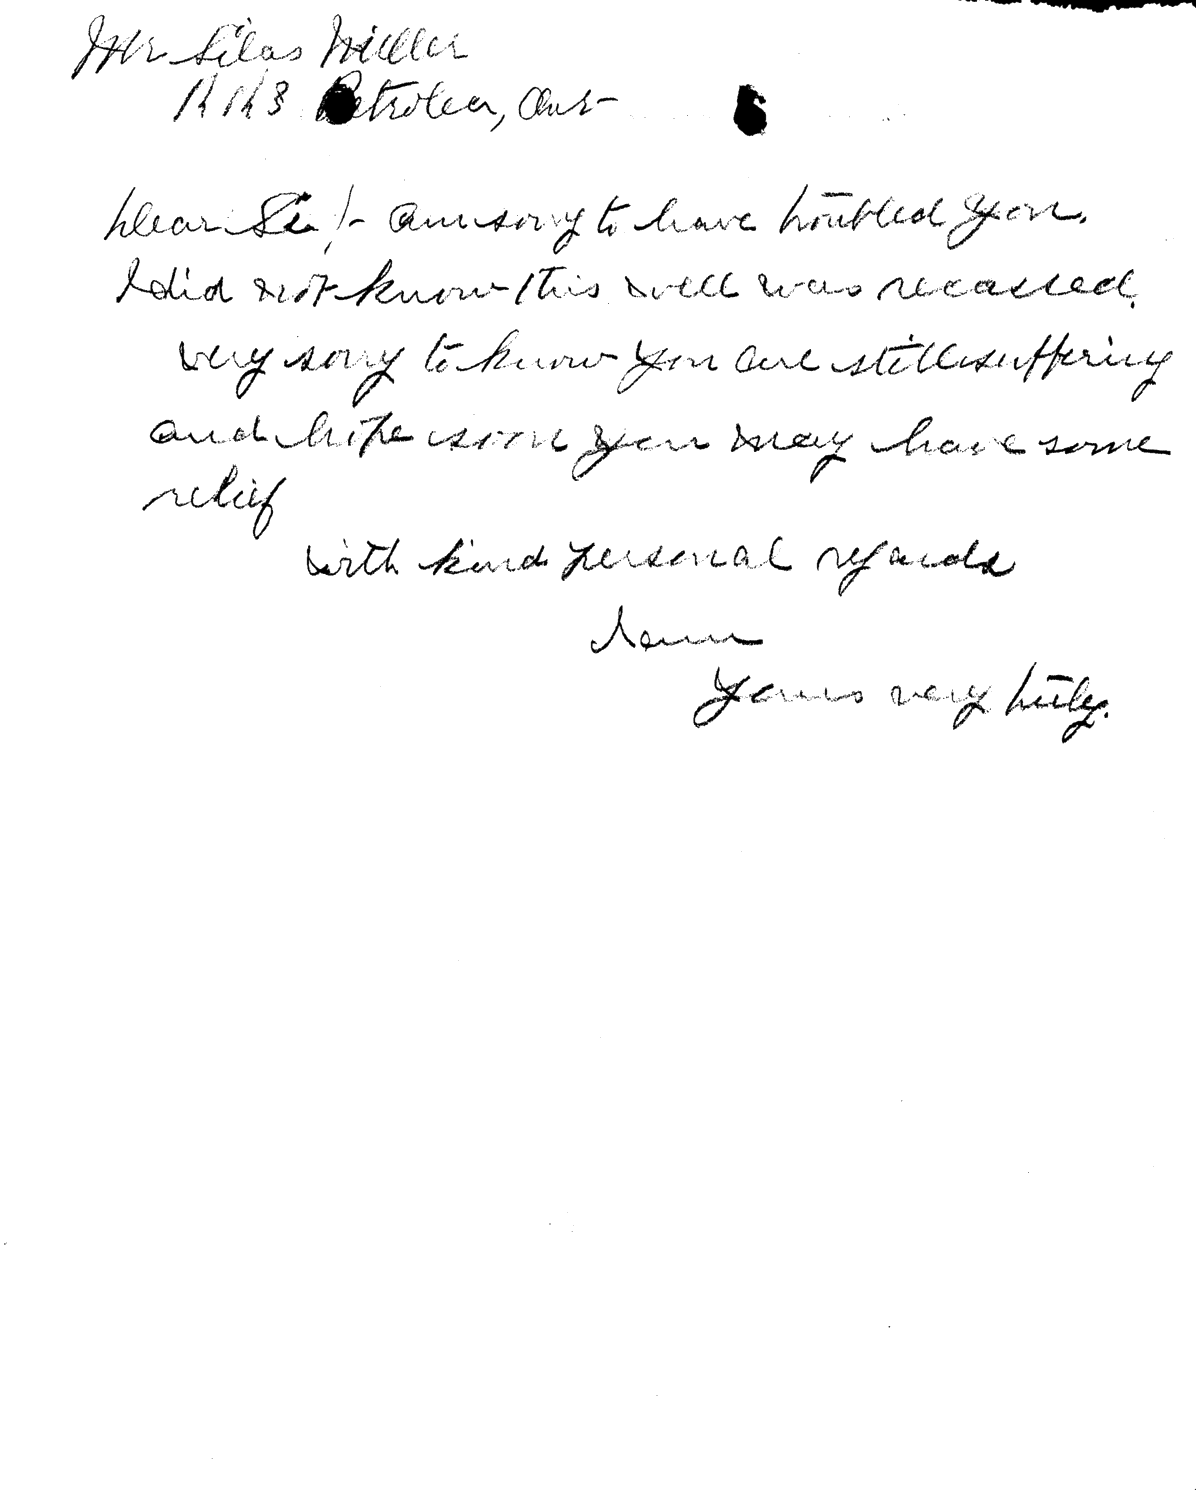 Mr Silas Miller
RR3 Petrolea, Ont
Dear Si!- am sorry to have troubled you.
I did not know this well was recassed.
very sorry to know you are still suffering
and hope soon you may have some
relief
with kind personal regards
I am
Yours very truly.